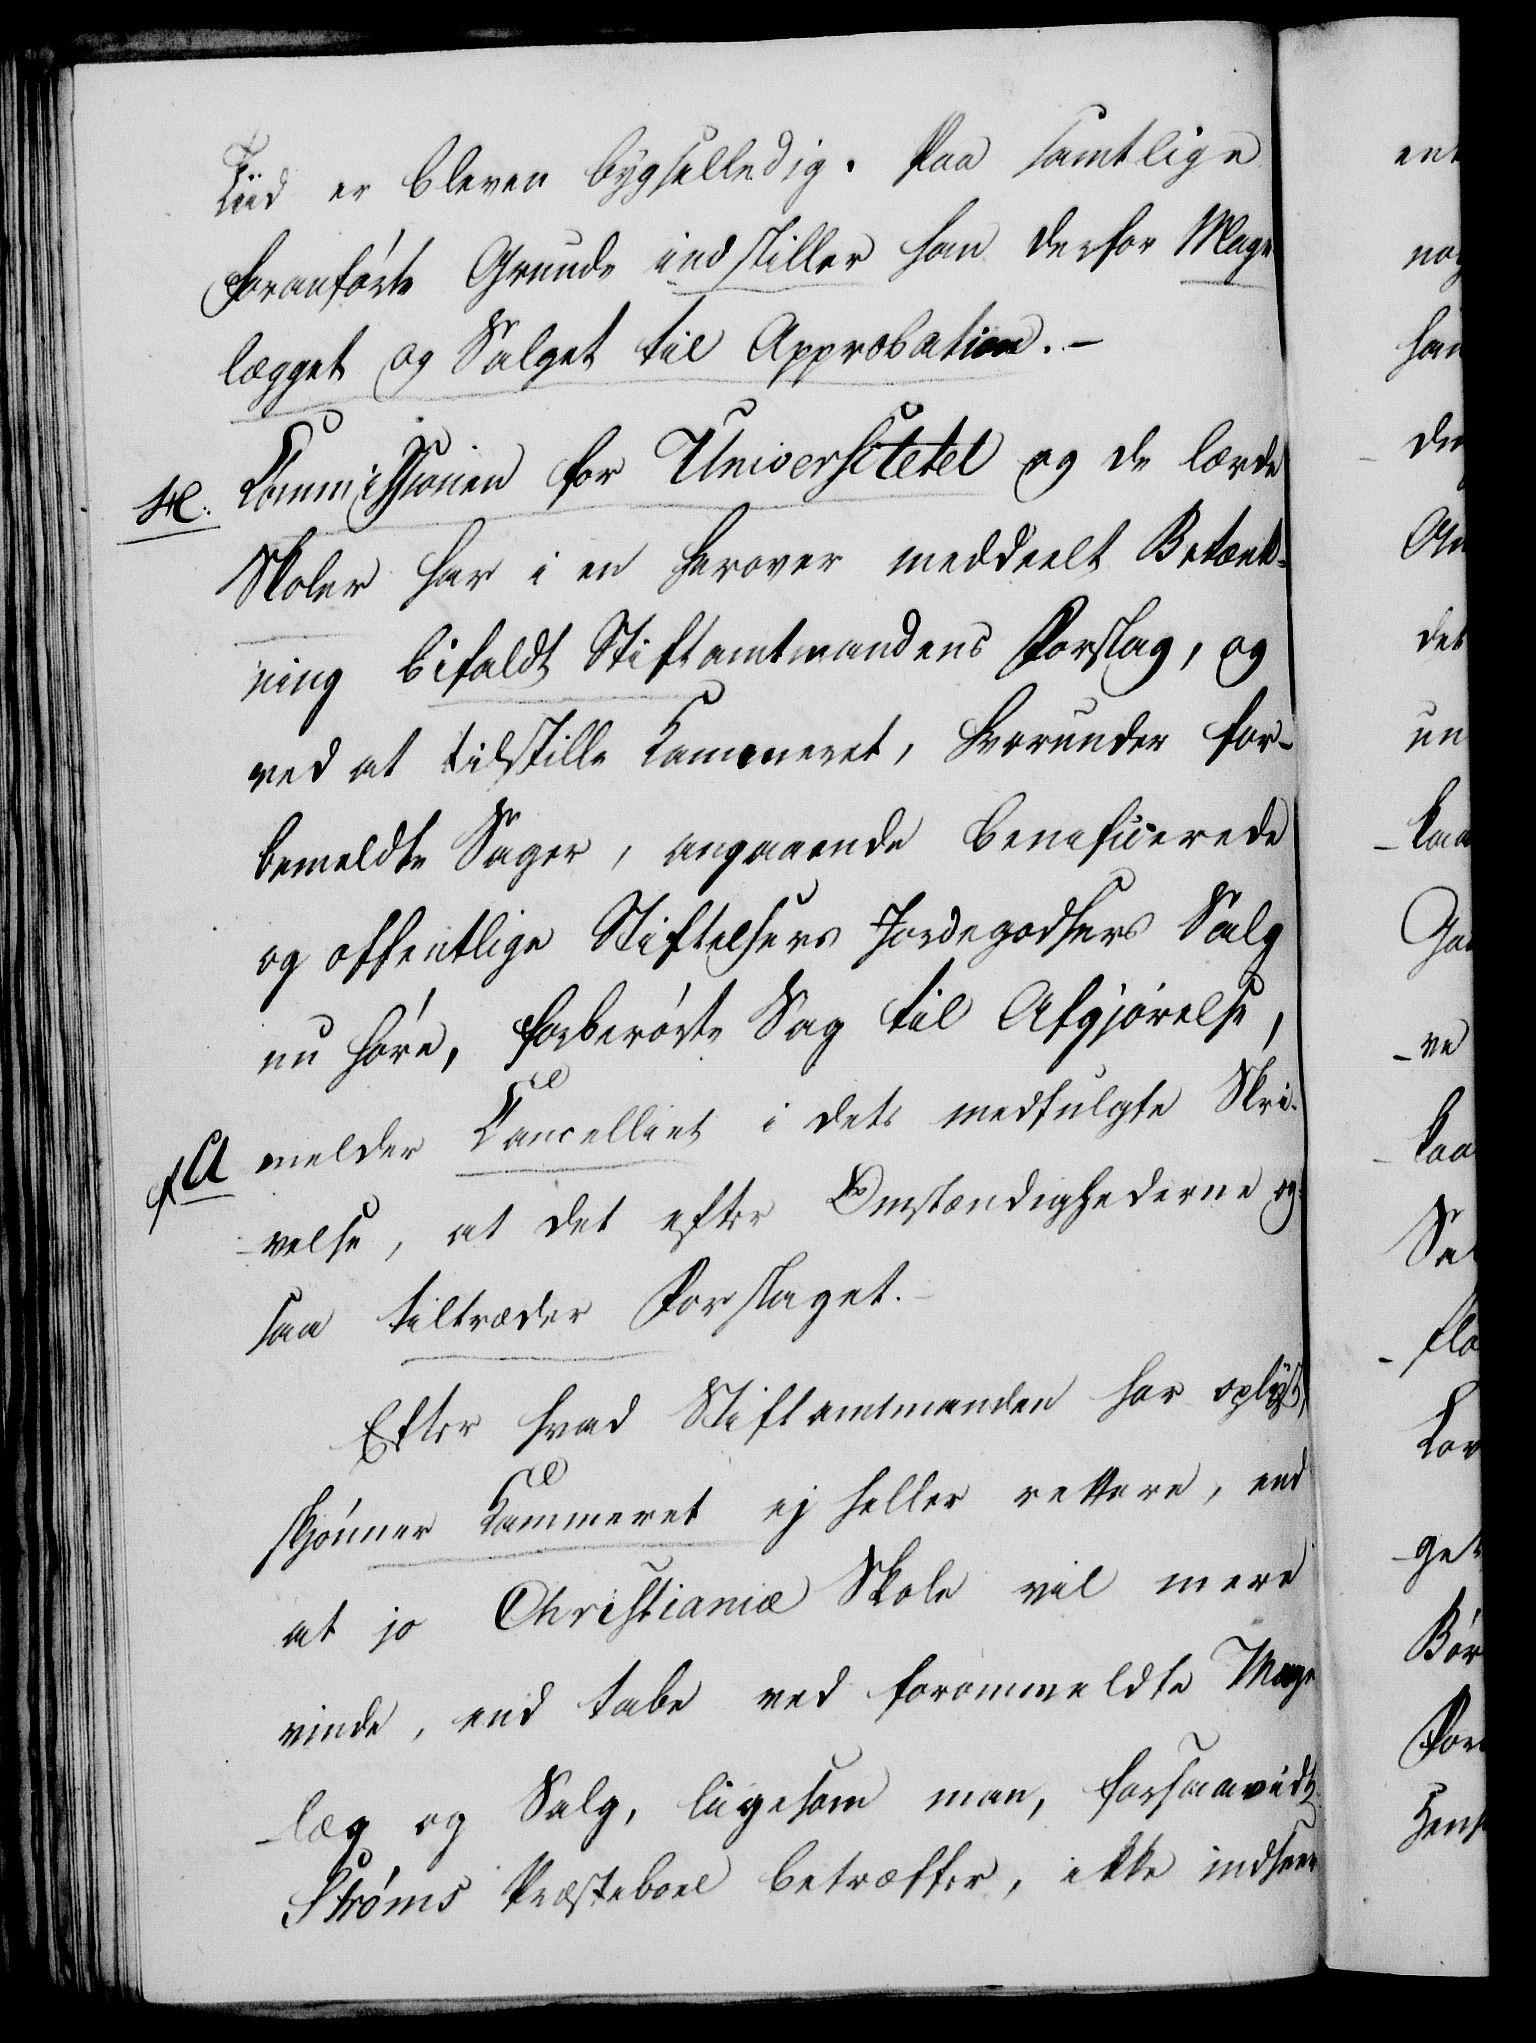 Tiid er bleven bygselledig. Paa samtlige
foranførte Grunde indstiller han derfor Mage
lægget og Salget til Approbation. –
Commissionen for Universitetet og de lærde
Skoler har i en herover meddeelt Betænk-
ning bifaldt Stiftamtmandens Forslag, og
ved at tilstille Kammeret, hvorunder for-
bemeldte Sager, angaaende beneficerede
og offentlige Stiftelsers Jordegodsers Salg
nu høre, forberørte Sag til Afgjørelse,
melder Cancelliet i dets medfulgte Skri-
velse, at det efter Omstændighederne og-
saa tiltræder Forslaget. –
Efter hvad Stiftamtmanden har oplyst,
skjønner Kammeret ej heller rettere, end
at jo Christianiæ Skole vil mere
vinde, end tabe ved forommeldte Mage
læg og Salg, ligesom man, forsaavidt
Strøms Præsteboel betræffer, ikke indseer